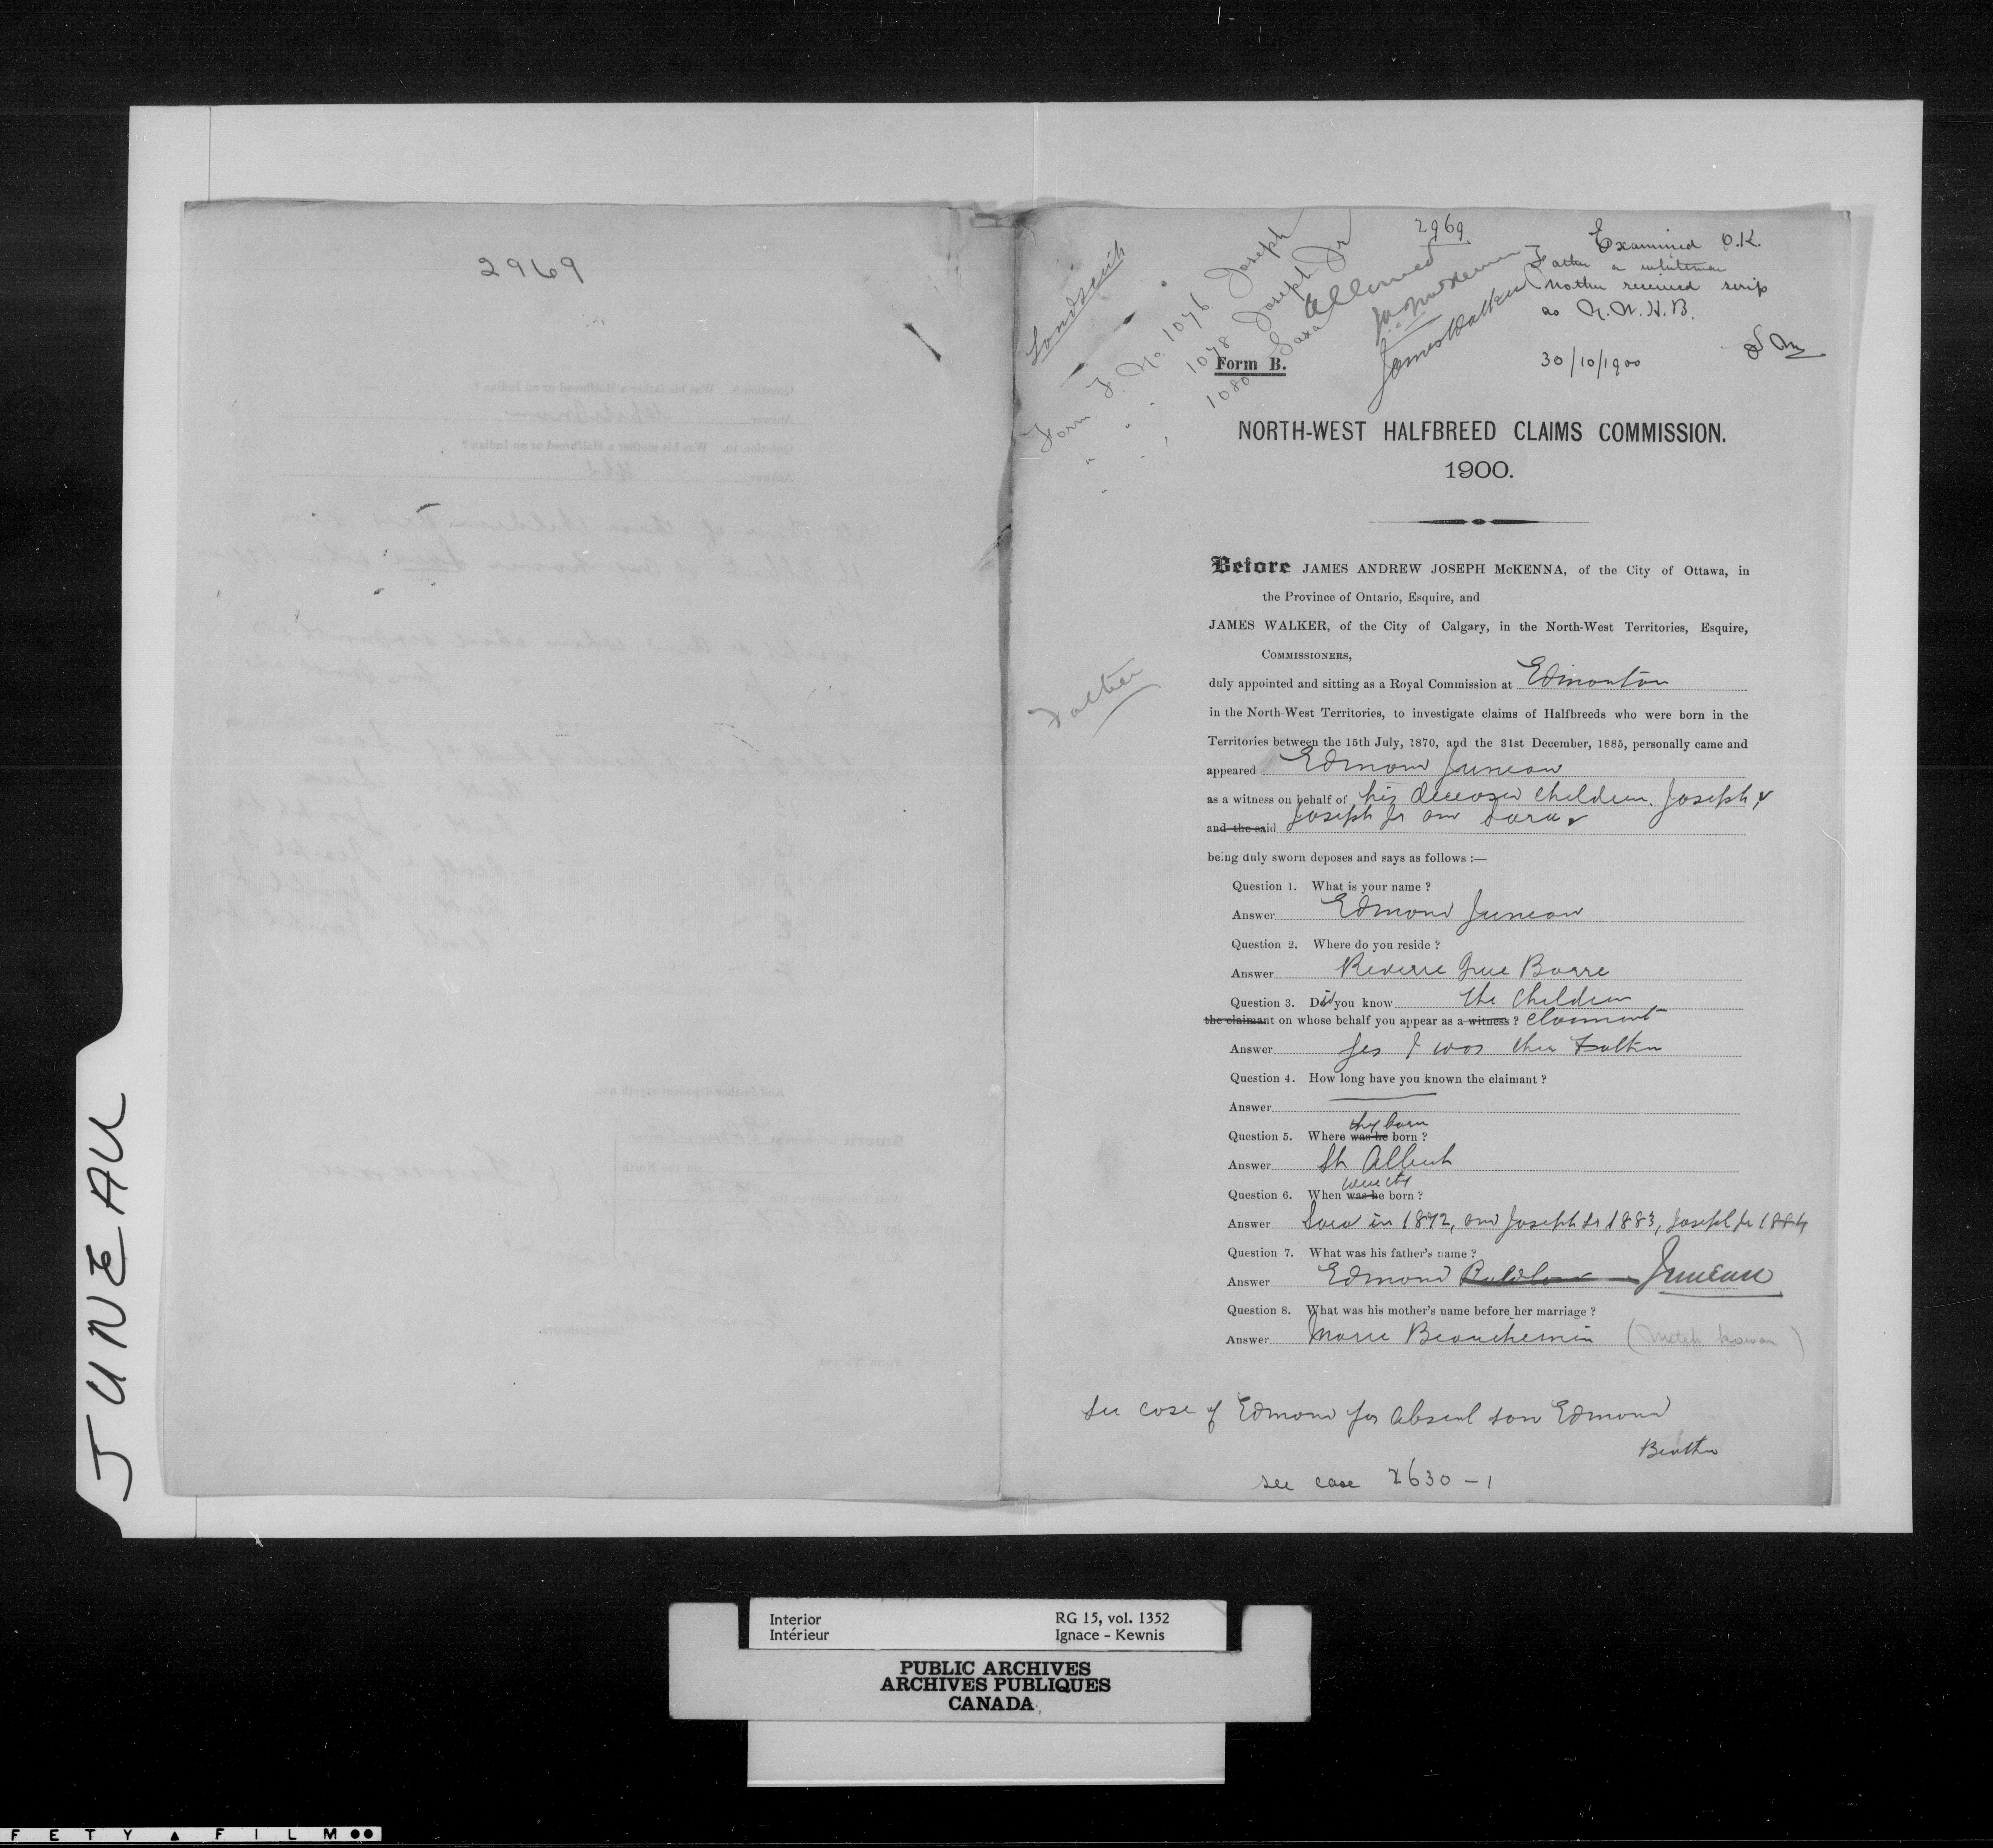 JUNEAU
2969
Landscrip
Form F. No. 1076 Joseph
" " 1078 Joseph Jr
" " 1080 Sara
2969
Allowed
JAJ McKenna
James Walker
Examined O.K.
Father a whiteman
Mother received scrip
as N.W.H.B.
30/10/1900
Form B.
NORTH-WEST HALFBREED CLAIMS COMMISSION.
1900.
Before JAMES ANDREW JOSEPH McKENNA, of the City of Ottawa, in
the Province of Ontario, Esquire, and
JAMES WALKER, of the City of Calgary, in the North-West Territories, Esquire,
COMMISSIONERS,
duly appointed and sitting as a Royal Commission at Edmonton
Father
in the North-West Territories, to investigate claims of Halfbreeds who were born in the
Territories between the 15th July, 1870, and the 31st December, 1885, personally came and
appeared Edmond Juneau
as a witness on behalf of his deceased children. Joseph,
and the said Joseph Jr and Sara
being duly sworn deposes and says as follows :—
Question 1. What is your name ?
Answer Edmond Juneau
Question 2. Where do you reside ?
Answer Riviere Que Barre
Question 3. Did you know the children
the claimant on whose behalf you appear as a witness ? claimant
Answer Yes I was their Father
Question 4. How long have you known the claimant ?
Answer
they born
Question 5. Where was he born ?
Answer St Albert
were they
Question 6. When was he born ?
Answer Sara in 1872, and Joseph Sr 1883, Joseph Jr 1884
Question 7. What was his father's name ?
Answer Edmond Juneau
Question 8. What was his mother's name before her marriage ?
Answer Marie Beauchemin
See case of Edmond for absent son Edmond
Brother
see case 2630 - 1
Interior
Intérieur
RG 15, vol. 1352
Ignace - Kewnis
PUBLIC ARCHIVES
ARCHIVES PUBLIQUES
CANADA
FETY ▲ FILM ●●